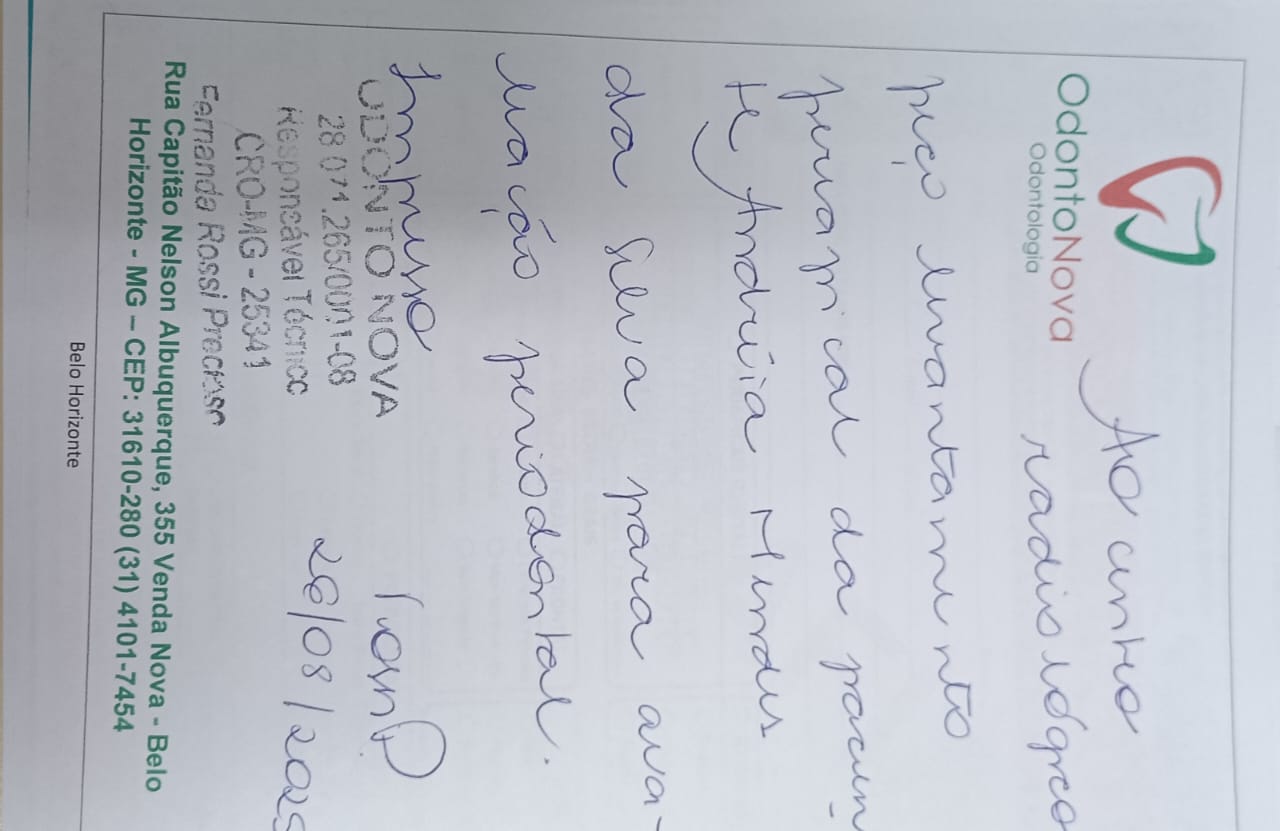 OdontoNova
Odontologia
Ao centro
radiológico
peço levantamento
periapical da pacien-
te Andréia Mendes
da Silva para ava-
liação periodontal.
Impresso
ODONTO NOVA
28.071.265/0001-08
Responsável Técnico
CRO-MG - 25341
Fernanda Rossi Precioso
26/08/2025
Rua Capitão Nelson Albuquerque, 355 Venda Nova - Belo
Horizonte - MG – CEP: 31610-280 (31) 4101-7454
Belo Horizonte